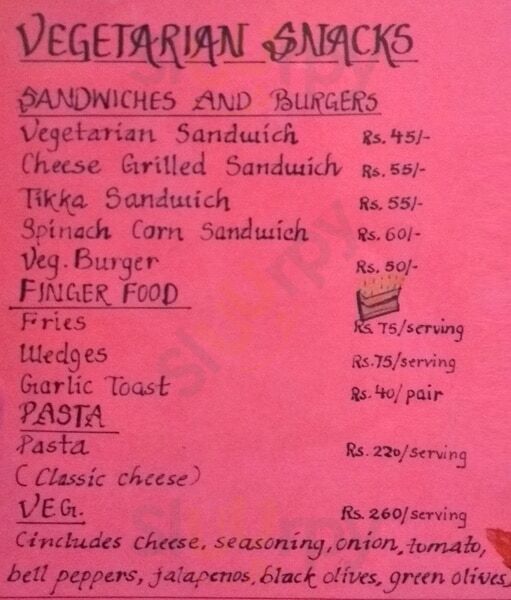 VEGETARIAN SNACKS
SANDWICHES AND BURGERS
Vegetarian Sandwich Rs. 45/-
Cheese Grilled Sandwich Rs. 55/-
Tikka Sandwich Rs. 55/-
Spinach Corn Sandwich Rs. 60/-
Veg. Burger Rs. 50/-
FINGER FOOD
Fries Rs. 75/serving
Wedges Rs. 75/serving
Garlic Toast Rs. 40/ pair
PASTA
Pasta Rs. 220/serving
(Classic cheese)
VEG. Rs. 260/serving
(includes cheese, seasoning, onion, tomato,
bell peppers, jalapenos, black olives, green olives,